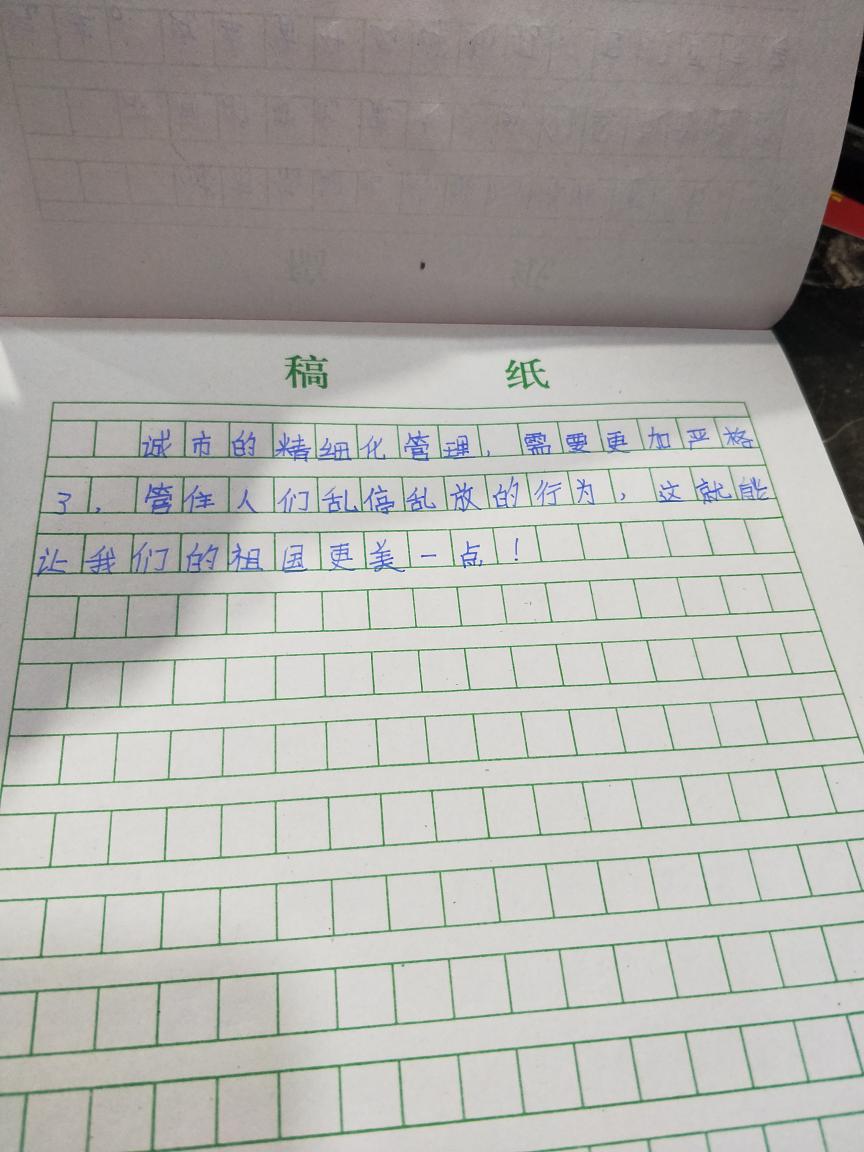 稿 纸
诚市的精细化管理，需要更加严格
了，管住人们乱停乱放的行为，这就能
让我们的祖国更美一点！